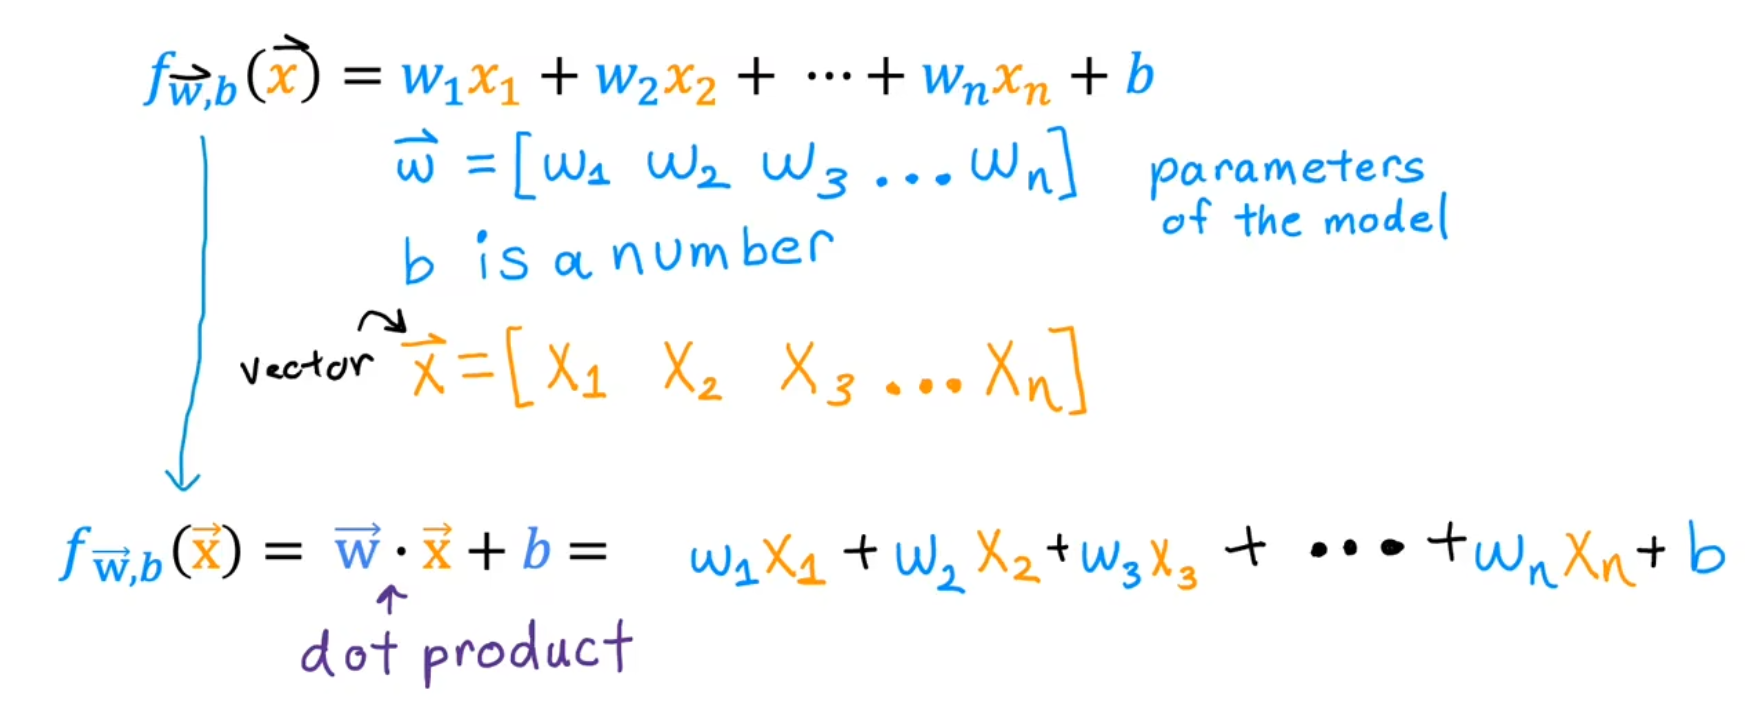 f_{\vec{w},b}(\vec{x}) = w₁x₁ + w₂x₂ + ⋯ + wₙxₙ + b
\vec{w} = [w₁ w₂ w₃ ... wₙ] parameters of the model
b is a number
vector \vec{x} = [x₁ x₂ x₃ ... xₙ]
f_{\vec{w},b}(\vec{x}) = \vec{w} · \vec{x} + b = w₁x₁ + w₂x₂ + w₃x₃ + ... + wₙxₙ + b
dot product